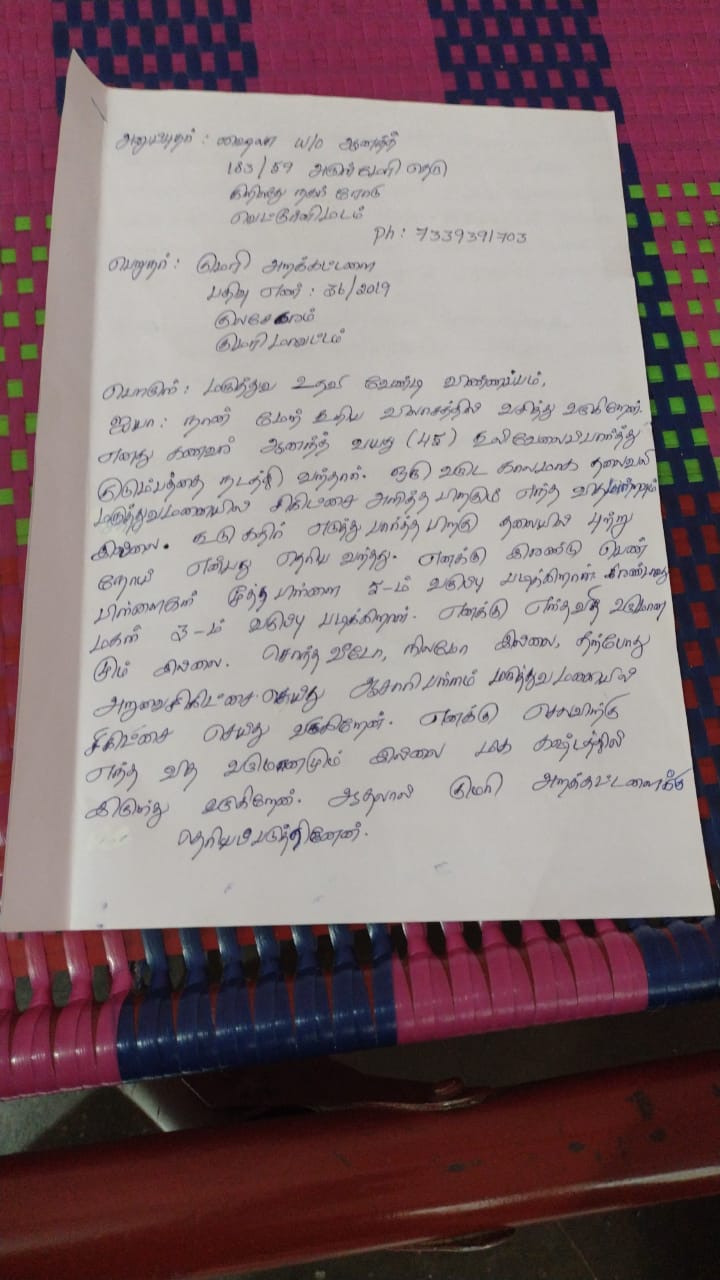 அனுப்புநர் : மைதிலா W/O ஆனந்த்
183/59 அருள்வேனி தெரு
கிறிஸ்து நகர் ரோடு
வெட்டூர்னிமடம்
Ph : 7339391703
பெறுநர் : குமரி அறக்கட்டளை
பதிவு எண் : 36/2019
குலசேகரம்
குமரி மாவட்டம்
பொருள் : மருத்துவ உதவி வேண்டி விண்ணப்பம்,
ஐயா : நான் மேற் கூறிய விலாசத்தில் வசித்து வருகிறேன்.
எனது கணவர் ஆனந்த் வயது (45) கூலிவேலை பார்த்து
குடும்பத்தை நடத்தி வந்தார். ஒரு வருட காலமாக தலைவலி
மருத்துவமனையில் சிகிட்சை அளித்த பிறகும் எந்த வித
இல்லை. ஊடு கதிர் எடுத்து பார்த்த பிறகு தலையில் புற்று
நோய் என்பது தெரிய வந்தது. எனக்கு இரண்டு பெண்
பிள்ளைகள் மூத்த பிள்ளை 5-ம் வகுப்பு படிக்கிறாள். இரண்டாவது
மகள் 3-ம் வகுப்பு படிக்கிறாள். எனக்கு எந்தவித வருமான
மும் இல்லை. சொந்த வீடோ, நிலமோ இல்லை, தற்போது
அறுவைசிகிட்சை செய்து ஆசாரிபள்ளம் மருத்துவமனையில்
சிகிட்சை செய்து வருகிறேன். எனக்கு செலவிற்கு
எந்த வித வருமானமும் இல்லை மிக கஷ்டத்தில்
இருந்து வருகிறேன். ஆதலால் குமரி அறக்கட்டளைக்கு
தெரியபடுத்தினேன்.